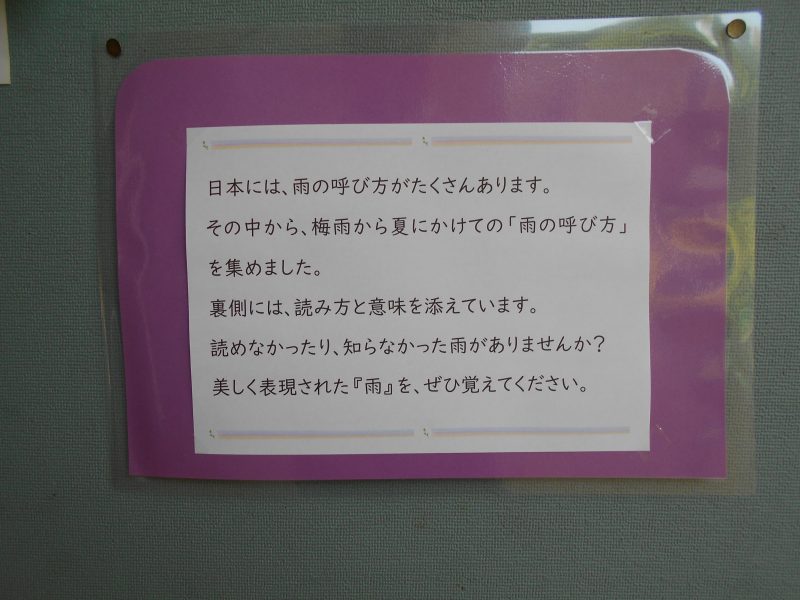 日本には、雨の呼び方がたくさんあります。
その中から、梅雨から夏にかけての「雨の呼び方」
を集めました。
裏側には、読み方と意味を添えています。
読めなかったり、知らなかった雨がありませんか?
美しく表現された『雨』を、ぜひ覚えてください。